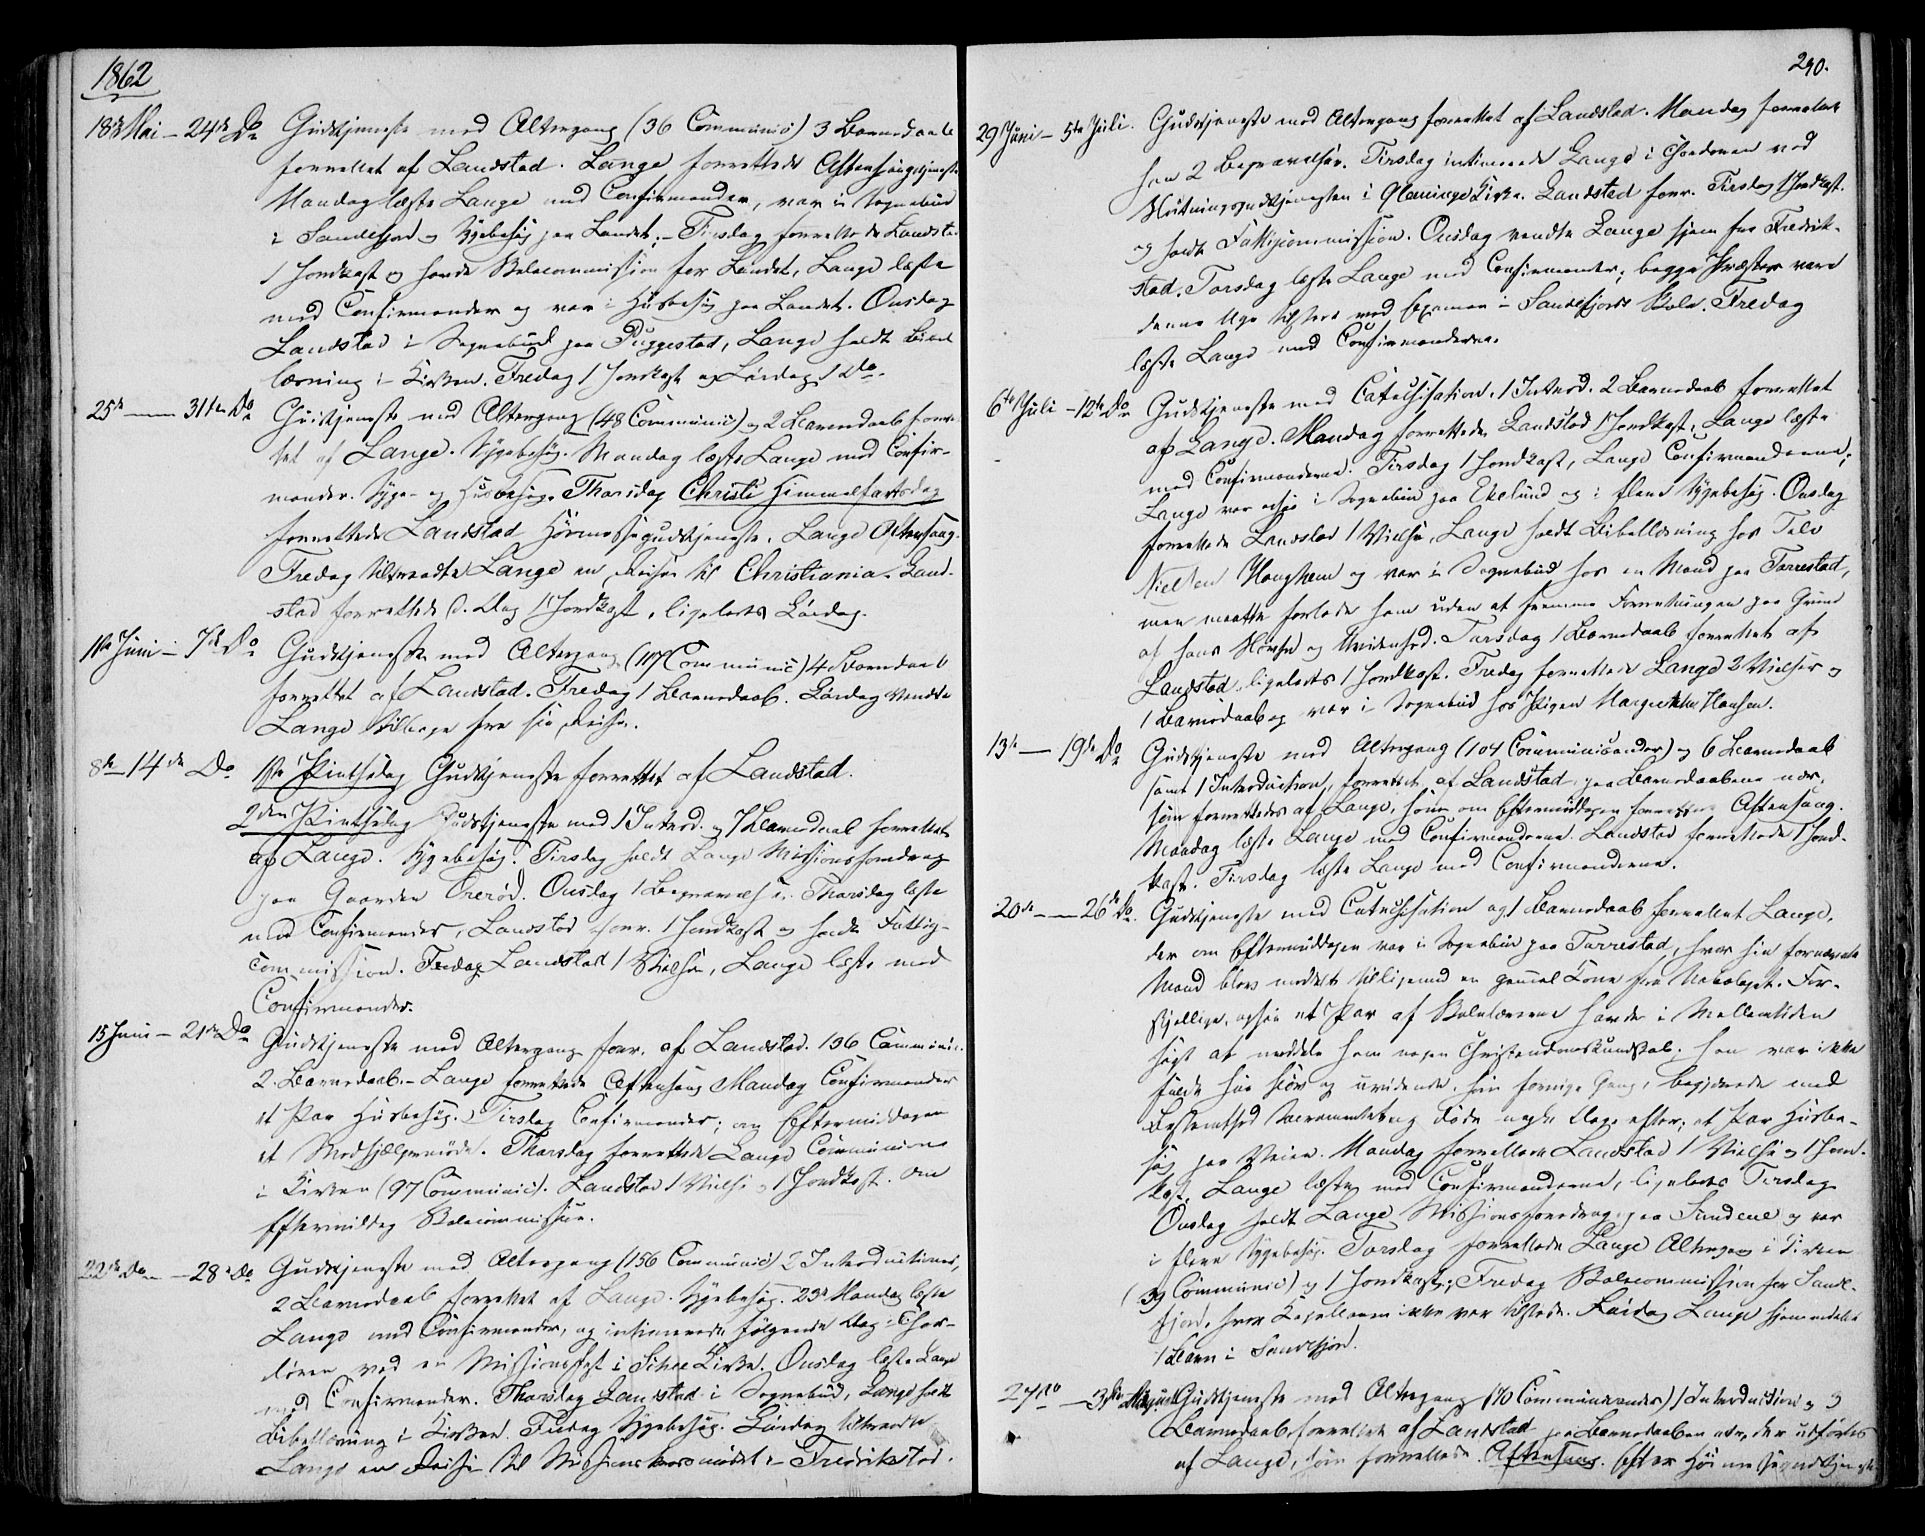 1862
18de Mai – 24de Do Gudstjeneste med Altergang (36 Communic) 3 Barnedaab
forrettet af Landstad. Lange forrettede Aftensangstjeneste
Mandag læste Lange med Confirmander, var i Sognebud
i Sandefjord og Sygebesøg paa Landet; – Tirsdag forrettede Landstad
1 Jordkast og havde Skolecommission for Landet, Lange læste
med Confirmander og var i Husbesøg paa Landet. Onsdag
Landstad i Sognebud paa Puggestad, Lange holdt Bibel
læsning i Kirken. Fredag 1 Jordkast og Lørdag 1 Do.
25de — 31te Do Gudstjeneste med Altergang (48 Communic) og 2 Barnedaab forret
tet af Lange. Sygebesøg. Mandag læste Lange med Confir-
mander. Syge- og Husbesøg. Thorsdag Christi Himmelfartsdag
forrettede Landstad Høimessegudstjeneste, Lange Aftensang.
Fredag tiltraadte Lange en Reise til Christiania. Land-
stad forrettede s. Dag 1 Jordkast, ligeledes Lørdag.
1ste Juni – 7de Do Gudstjeneste med Altergang (107 Communic) 4 Barnedaab
forrettet af Landstad. Fredag 1 Barnedaab. Lørdag vendte
Lange tilbage fra sin Reise.
8de – 14de Do 1ste Pintsedag Gudstjeneste forrettet af Landstad.
2den Pintsedag Gudstjeneste med 1 Introd. og 7 Barnedaab forrettet
af Lange. Sygebesøg. Tirsdag holdt Lange Missionsforedrag
paa Gaarden Örerød. Onsdag 1 Begravelse. Thorsdag læste
med Confirmander, Landstad forr. 1 Jordkast og havde Fattig-
commission. Fredag Landstad 1 Vielse, Lange læste med
Confirmander.
15 Juni – 21de Do Gudstjeneste med Altergang forr. af Landstad. 136 Communic.
2 Barnedaab. – Lange forrettede Aftensang Mandag Confirmander
et Par Husbesøg. Tirsdag Confirmander; om Eftermiddagen
et Medhjælpermøde. Thorsdag forrettede Lange Communion
i Kirken (97 Communic). Landstad 1 Vielse og 1 Jordkast. Om
Eftermiddag Skolecommission.
22de Do – 28de Do Gudstjeneste med Altergang (156 Communic) 2 Introductioner,
2 Barnedaab forrettet af Lange. Sygebesøg. 23de Mandag læste
Lange med Confirmander, og intimerede følgende Dag i Chor-
døren ved en Missionsfest i Kirke. Onsdag læste Lange
med Confirmander. Thorsdag Landstad i Sognebud, Lange holdt
Bibellæsning i Kirken. Fredag Sygebesøg. Lørdag tiltraadte
Lange en Reise til Missionskredsmødet i Fredrikstad.
290.
29 Juni – 5te Juli. Gudstjeneste med Altergang forrettet af Landstad. Mandag forrettede
han 2 Begravelser. Tirsdag intimerede Lange i Chordøren ved
Slutningsgudstjenesten i Glemmige Kirke. Landstad forr. Tirsdag 1 Jordkast.
og holdt Fattigcommission. Onsdag vendte Lange hjem fra Fredrik-
stad. Torsdag læste Lange med Confirmander; begge Præster vare
denne Uge tilstede ved Examen i Sandefjords Skole. Fredag
læste Lange med Confirmanderne.
6te Juli – 12te Do Gudstjeneste med Catechisation. 1 Introd. 2 Barnedaab forrettet
af Lange. Mandag forrettede Landstad 1 Jordkast, Lange læste
med Confirmanderne. Tirsdag 1 Jordkast, Lange Confirmanderne;
Lange var ogsaa i Sognebud paa Ekelund og i flere Sygebesøg. Onsdag
forrettede Landstad 1 Vielse, Lange holdt Bibellæsning hos
Nielsen Haughem og var i Sognebud hos en Mand paa Torrestad,
men maatte forlade ham uden at fremme Forretningen paa Grund
af hans Sløvhed og Uvidenhed. Torsdag 1 Barnedaab forrettet af
Landstad, ligeledes 1 Jordkast. Fredag forrettede Lange 2 Vielser og
1 Barnedaab og var i Sognebud hos Pigen Margrethe Hansen.
13de — 19de Do Gudstjeneste med Altergang (104 Communicander) og 6 Barnedaab
samt 1 Introduction, forrettet af Landstad, paa Barnedaabene nær,
som forrettedes af Lange, som om Eftermiddagen forrettede Aftensang.
Mandag læste Lange med Confirmanderne. Landstad forrettede 1 Jord-
kast. Tirsdag læste Lange med Confirmanderne.
20de — 26de Do. Gudstjeneste med Catechisation og 1 Barnedaab forrettet Lange,
der om Eftermiddagen var i Sognebud paa Torrestad, hvor hin fornævnte
Mand blev meddelt tilligemed en gammel Kone fra Nabolaget. For-
skjellige, ogsaa et Par af Skolelærerne havde i Mellemtiden
søgt at meddele ham nogen Christendomskundskab. Han var ikke
fuldt saa sløv og uvidende, som forrige Gang, begjærede med
Bestemthed Sacramentet og døde nogle Dage efter; et Par Husbe-
søg paa Veien. Mandag forrettede Landstad 1 Vielse og 1 Jord-
kast, Lange læste med Confirmanderne, ligeledes Tirsdag.
Onsdag holdt Lange Missionsforedrag paa Sundene og var
i flere Sygebesøg. Torsdag forrettede Lange Altergang i Kirken
(39 Communic) og 1 Jordkast; Fredag Skolecommission for Sande-
fjord, hvor Kapellanen ikke var tilstede. Lørdag Lange hjemmedøbt
1 Barn i Sandefjord.
27de – 3die August Gudstjeneste med Altergang (70 Communicander) 1 Introduction og 3
Barnedaab, forrettet af Landstad paa Barnedaaben nær, der udførtes
af Lange, som forrettede Aftensang. Efter Høimessegudstjeneste